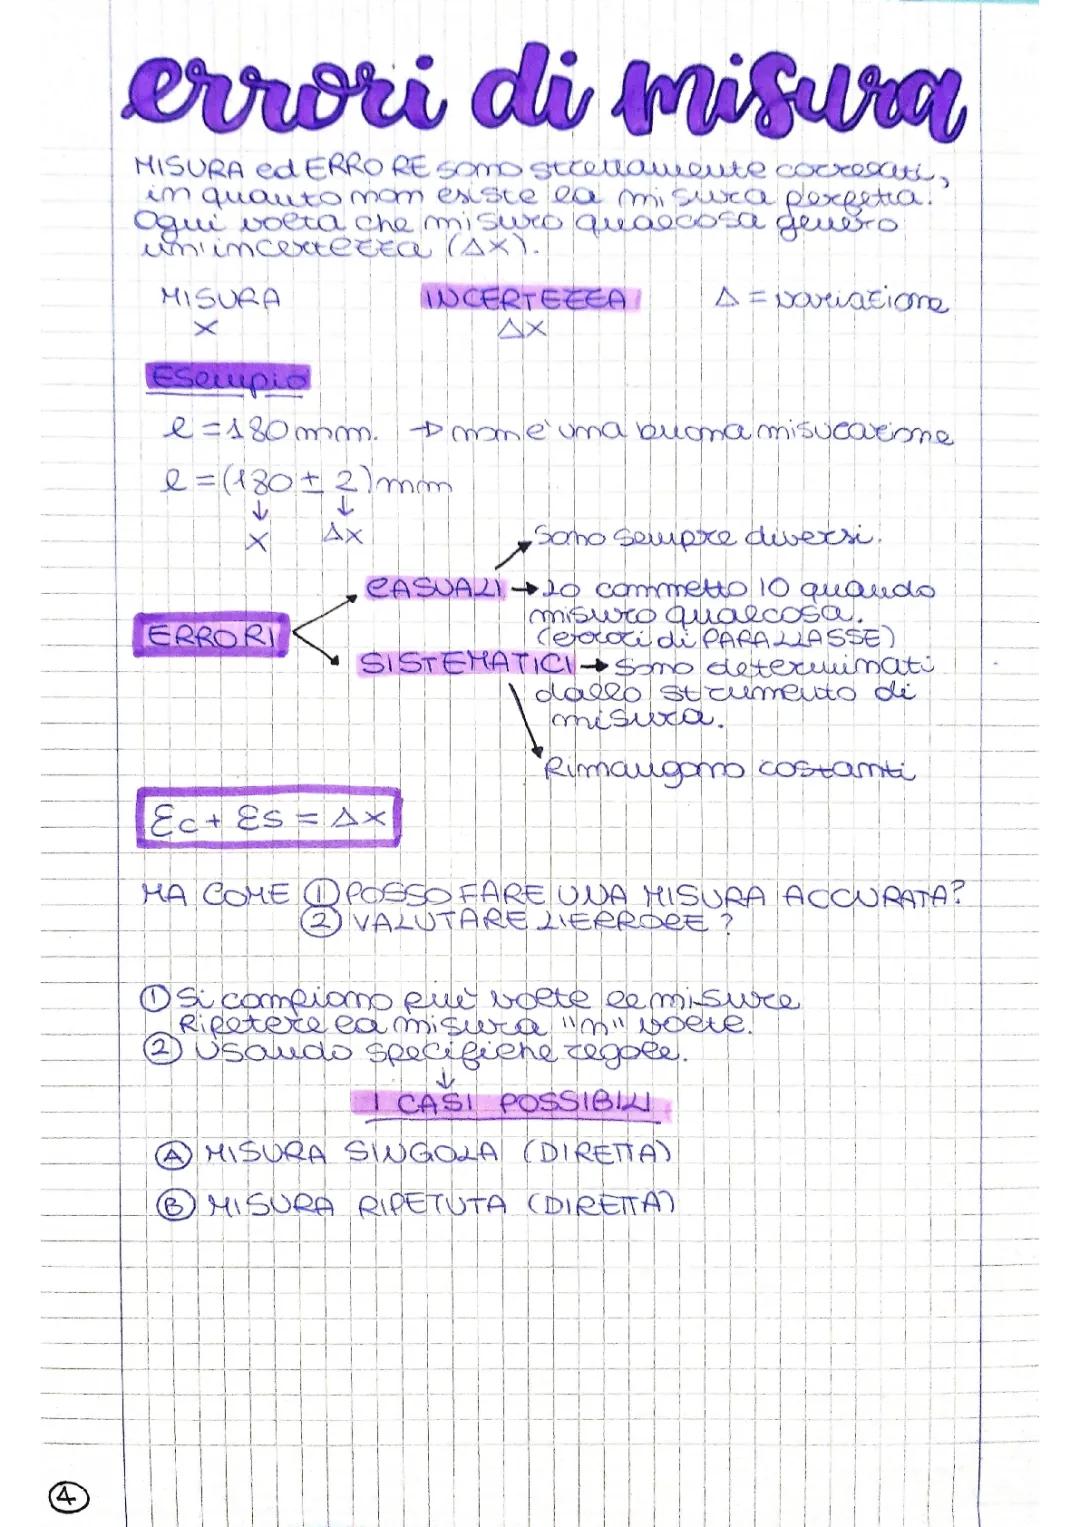 errori di misura
MISURA ed ERRORE sono strettamente correlati,
in quanto non esiste la misura perfetta.
Ogni volta che misuro qualcosa genero
un'incertezza (Δx).
MISURA INCERTEZZA Δ = variazione
x Δx
Esempio
l = 180 mm. → non è una buona misurazione
l = (180 ± 2) mm
↓ ↓
x Δx
Sono sempre diversi.
CASUALI → Lo commetto IO quando
misuro qualcosa.
(errori di PARALLASSE)
ERRORI
SISTEMATICI → Sono determinati
dallo strumento di
misura.
Rimangono costanti
Ec + Es = Δx
MA COME ① POSSO FARE UNA MISURA ACCURATA?
② VALUTARE L'ERRORE?
① Si compiono più volte le misure
Ripetere la misura "n" volte.
② Usando specifiche regole.
↓
I CASI POSSIBILI
Ⓐ MISURA SINGOLA (DIRETTA)
Ⓑ MISURA RIPETUTA (DIRETTA)
④